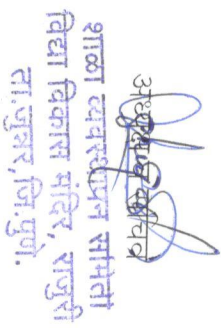 अध्यक्ष/सचिव
शाळा व्यवस्थापन समिती
विद्या विकास मंदिर, राजुरी
ता.जुन्नर, जि.पुणे.